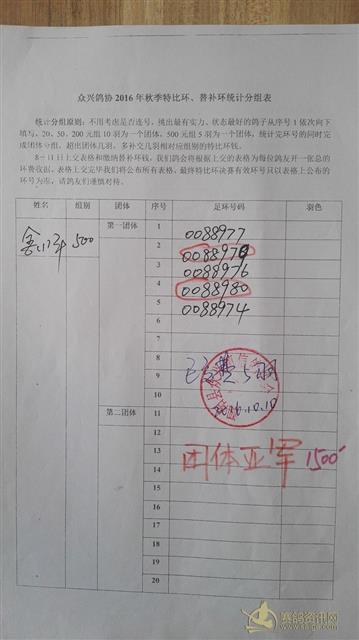 众兴鸽协 2016 年秋季特比环、替补环统计分组表
统计分组原则：不用考虑是否连号，挑出最有实力、状态最好的鸽子从序号 1 依次向下
填写，20、50、200 元组 10 羽为一个团体，500 元组 5 羽为一个团体，统计完环号的同时完
成团体分组，超出团体几羽，多补交几羽相对应组别的特比环。
8-11 日上交表格和缴纳替补环钱，我们鸽会将根据上交的表格为每位鸽友开一张总的
环费收据。表格上交完毕我们将公布所有表格，最终特比环决赛有效环号只以表格上公布的
环号为准，请鸽友们谨慎对待。
姓名 组别 团体 序号 足环号码 羽色
500 第一团体 1 0088977
2 008897
3 0088976
4 0088980
5 0088974
6
7
8
9
10
2016.10.10
第二团体 11
12
13 团体亚军 1500
14
15
16
17
18
19
20
赛鸽资讯网